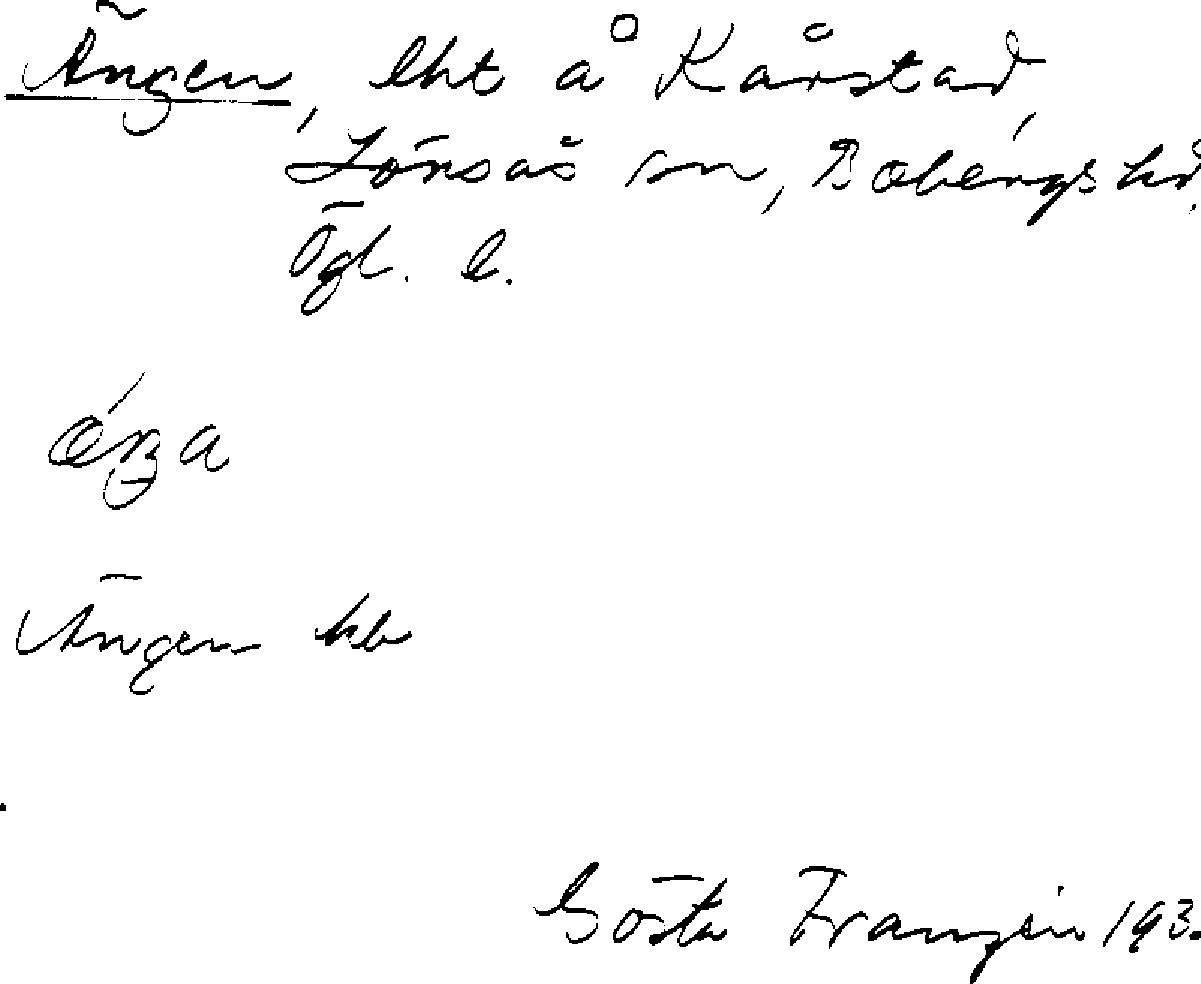 Ängen, lht å Kårstad,
Lönsås sn, Bobergs hd.
Ögl. l.
ǽŋa
Ängen kb
Gösta Franzén 193.